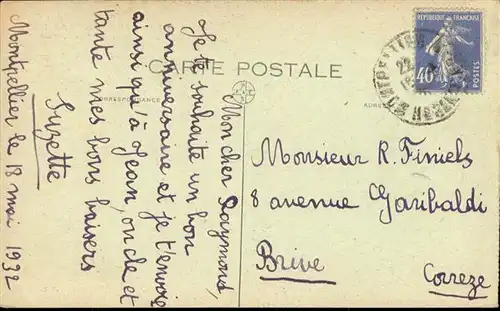 CARTE POSTALE
CORRESPONDANCE
ADRESSE
Mon cher Raymond,
Je te souhaite un bon
anniversaire et je t'envoie
ainsi qu'à Jean, oncle et
tante mes bons baisers
Suzette
Montpellier le 18 mai 1932
REPUBLIQUE FRANÇAISE
40c
POSTES
Monsieur R. Finiels
8 avenue Garibaldi
Brive
Correze